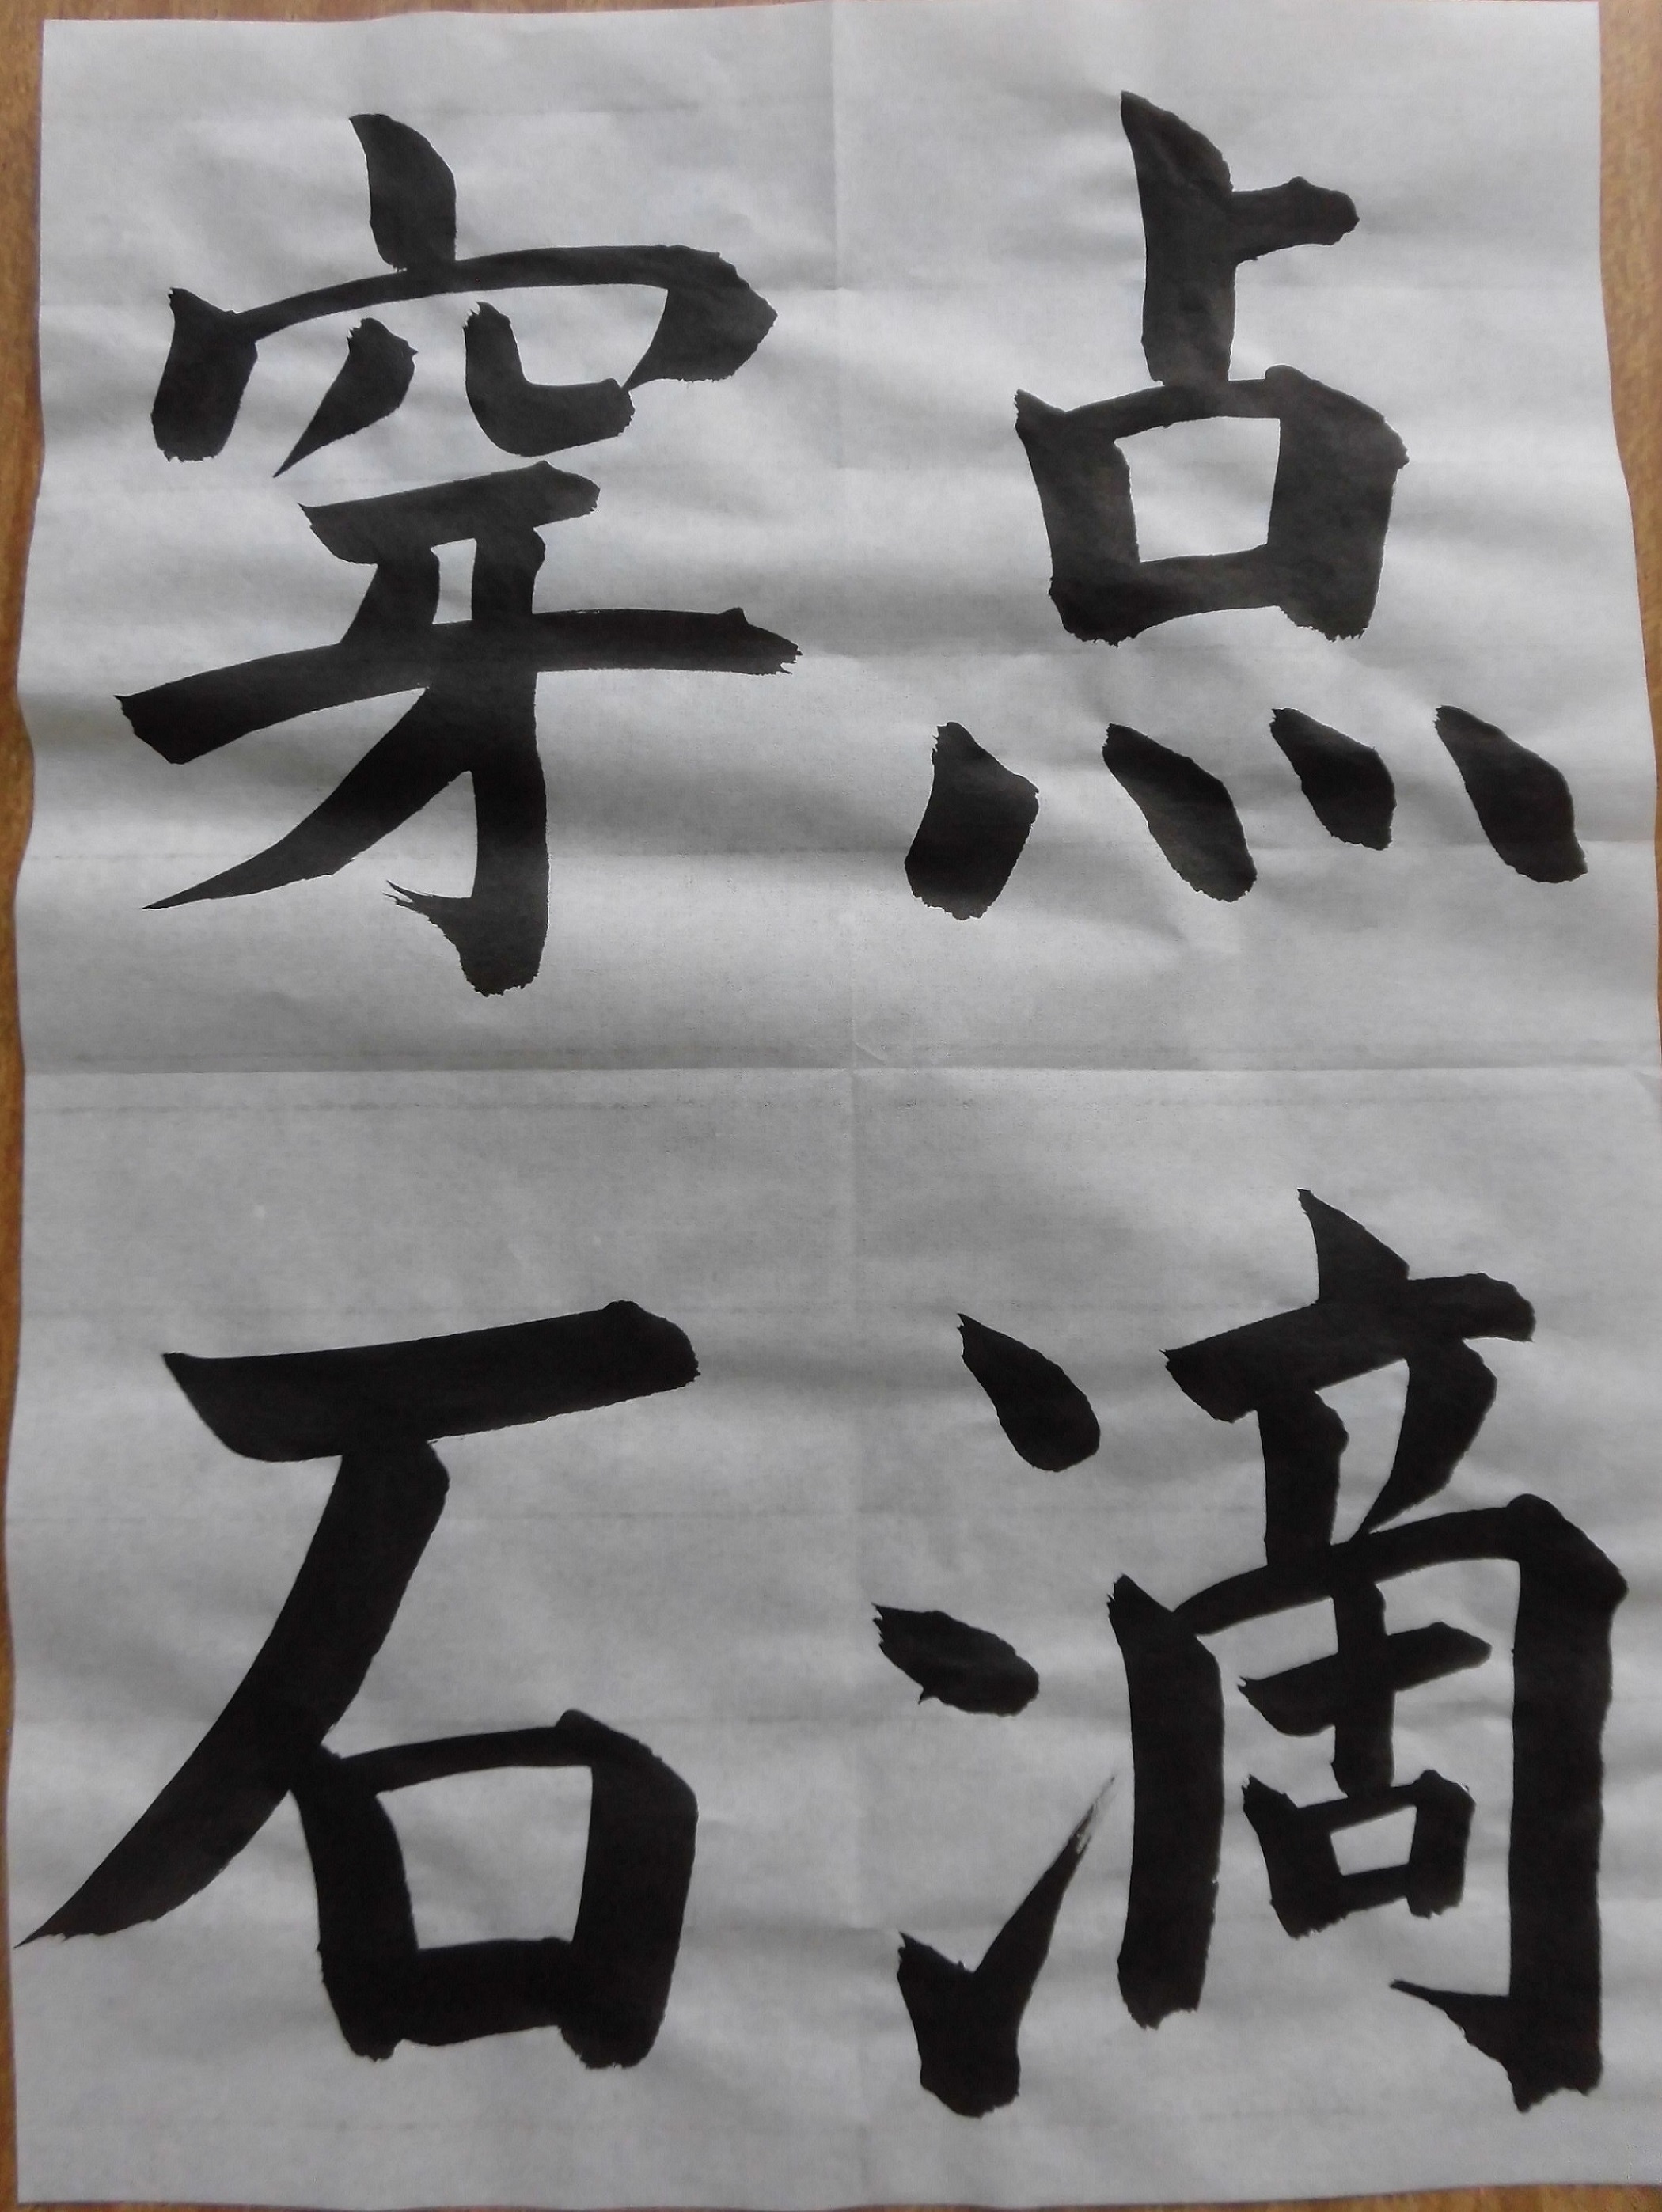 点滴
穿石